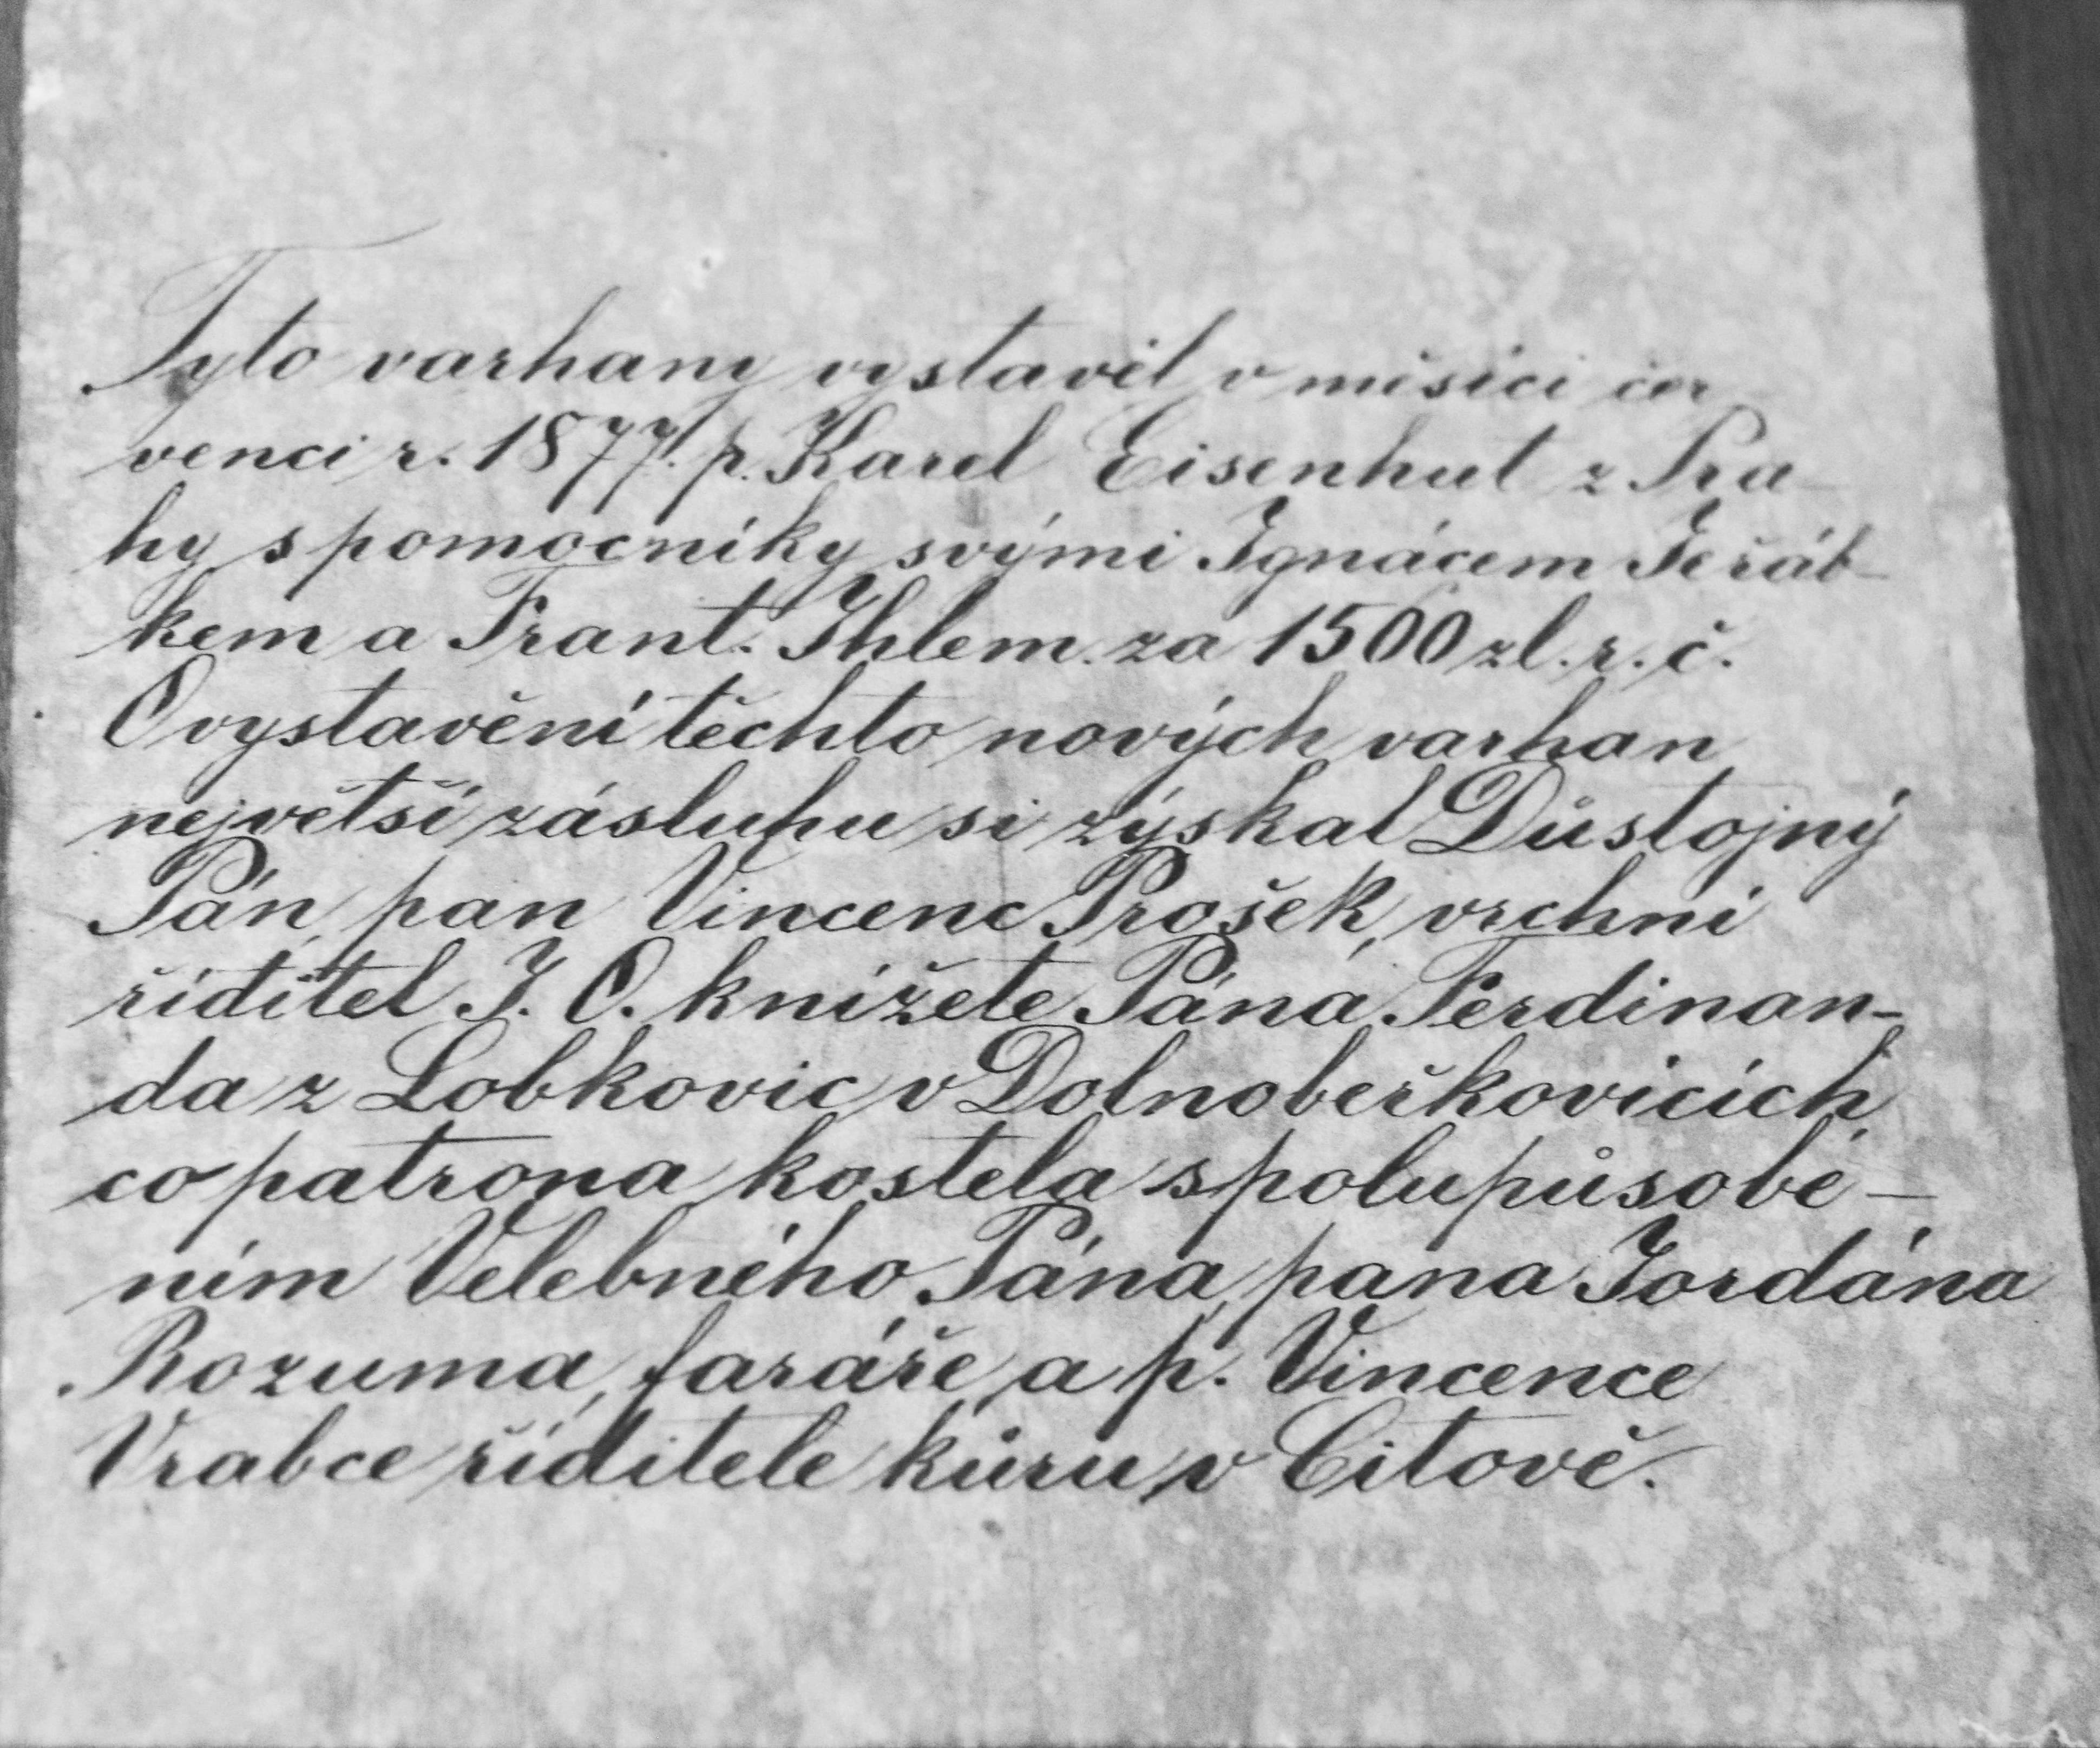 Tyto varhany vystavěl v měsíci čer
venci r. 1877. p. Karel Eisenhut z Pra-
hy s pomocníky svými Ignácem Jeřáb-
kem a Frant. Ihlem za 1500 zl. r. č.
O vystavění těchto nových varhan
největší zásluhu si zýskal Důstojný
Pán, pan Vincenc Prošek, vrchní
řiditel J. O. knížete Pána Ferdinan-
da z Lobkovic v Dolnobeřkovicích,
co patrona kostela spolupůsobe-
ním Velebného Pána, pana Jordána
Rozuma, faráře, a p. Vincence
Vrabce řiditele kůru v Citově.